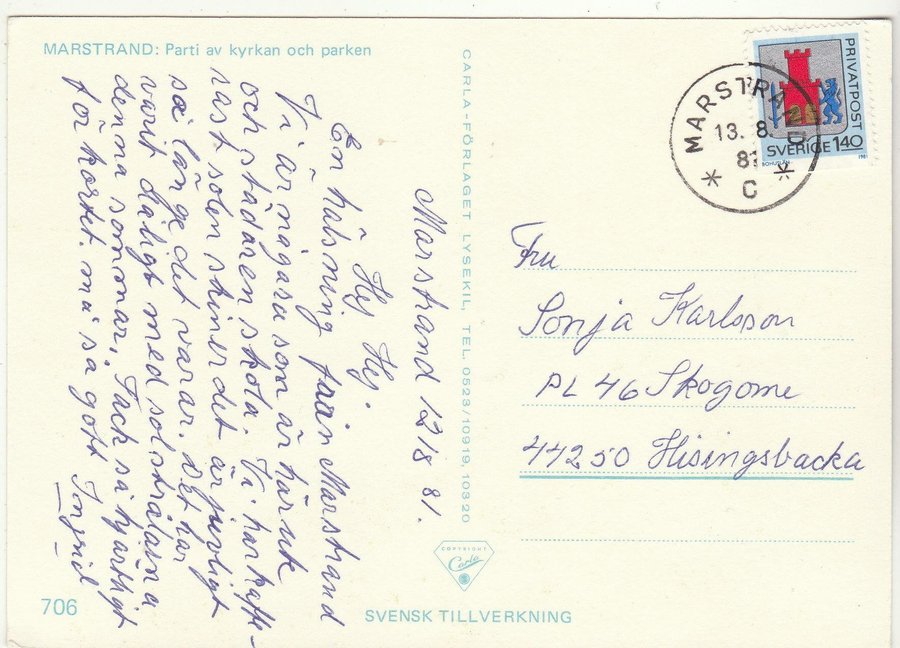 MARSTRAND: Parti av kyrkan och parken
Marstrand 12/8 81.
Hej Hej.
En hälsning från Marstrand
Vi är några som är här ute
och städar en skola. Vi har kaffe-
rast solen skiner det är
så länge det varar. Det har
varit dåligt med solstrålarna
denna sommar. Tack så hjärtligt
för kortet. må så gott Ingrid
CARLA-FÖRLAGET LYSEKIL, TEL. 0523/10919, 10320
PRIVATPOST
SVERIGE 1.40
BOHUSLÄN
1981
MARSTRAND
13. 8.
81
C
Fru
Sonja Karlsson
PL 46 Skogome
44250 Hisingsbacka
COPYRIGHT
Carla
706
SVENSK TILLVERKNING